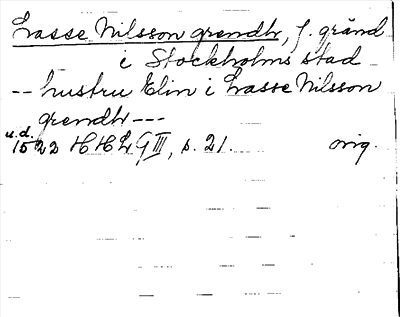 Lasse Nilsson grendh, f. gränd
i Stockholms stad
-- hustru Elin i Lasse Nilsson
grendh ---
u.d.
1522 HHL G III, s. 21. orig.